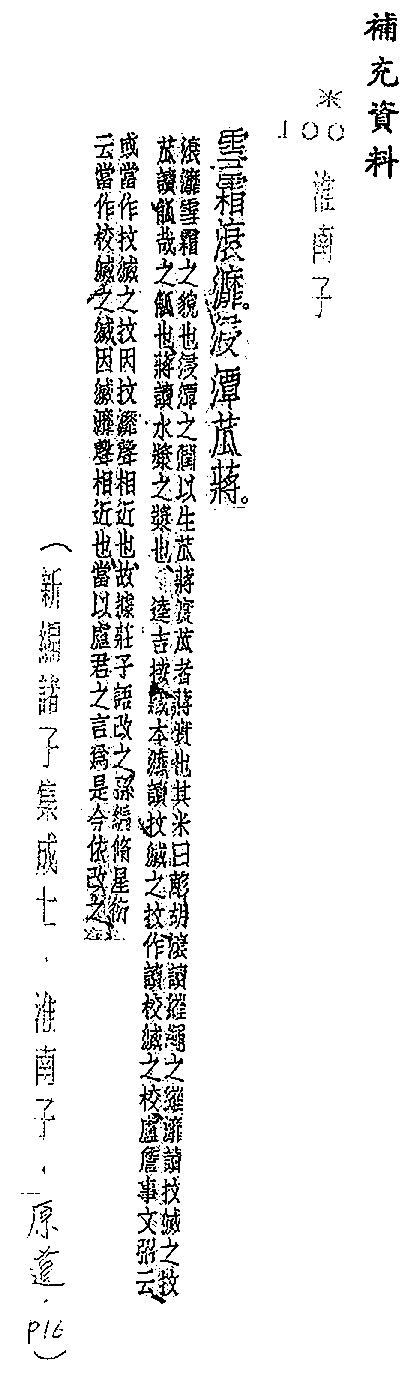 補充資料
※
100 淮南子
雪霜滾灖。浸潭苽蔣。
滾灖雪霜之貌也浸潭之潤以生苽蔣實苽者蔣實也其米曰彫胡滾讀維繩之維灖讀抆滅之抆
苽讀觚哉之觚也蔣讀水漿之漿也、逵吉按藏本灖讀抆滅之抆作讀校滅之校、盧詹事文弨云、
或當作抆滅之抆因抆灖聲相近也、故據莊子語改之、孫編脩星衍
云當作校滅之滅、因滅灖聲相近也、當以盧君之言爲是今依改之、
(新編諸子集成七.淮南子.原道.P16)